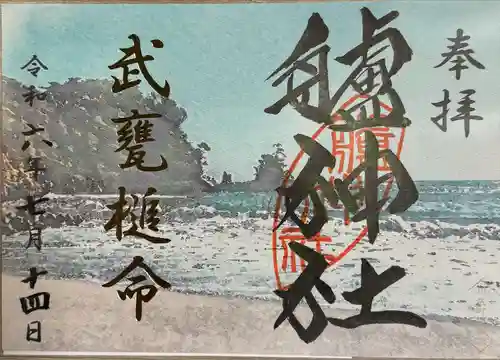 奉拝
艫神社
武甕槌命
令和六年七月十四日